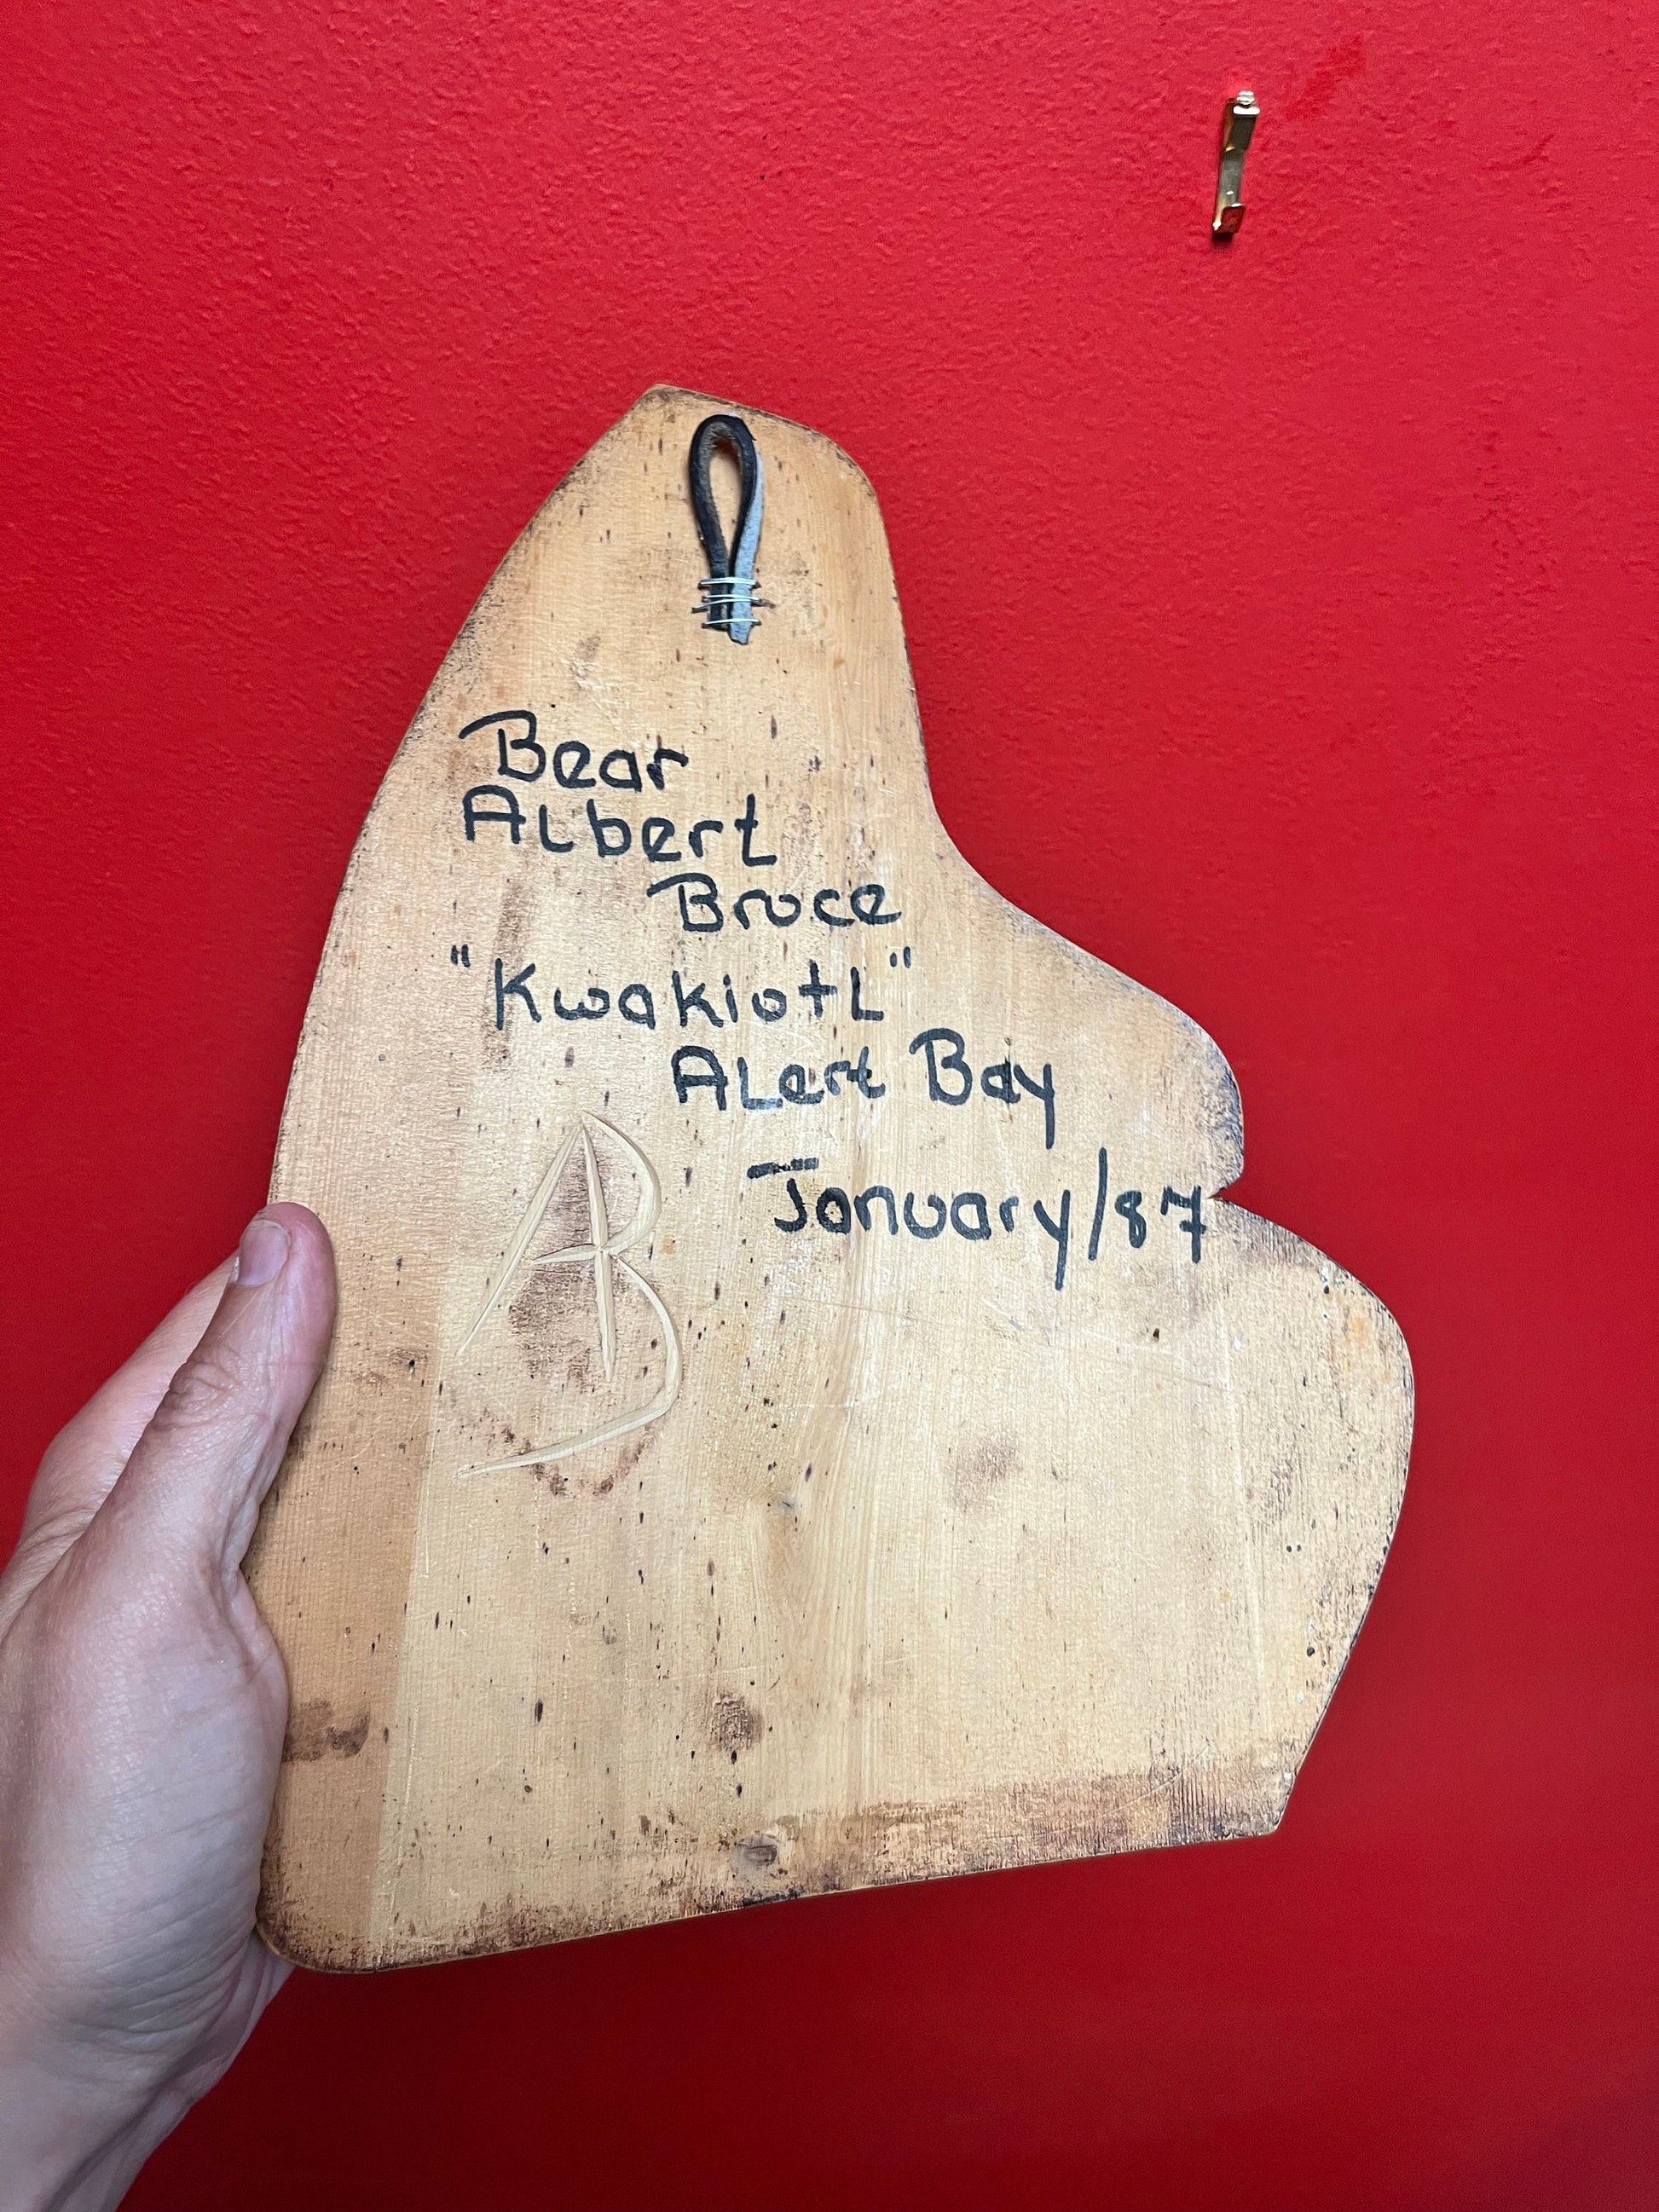 Bear
Albert
Bruce
"Kwakiutl"
Alert Bay
January/87
AB